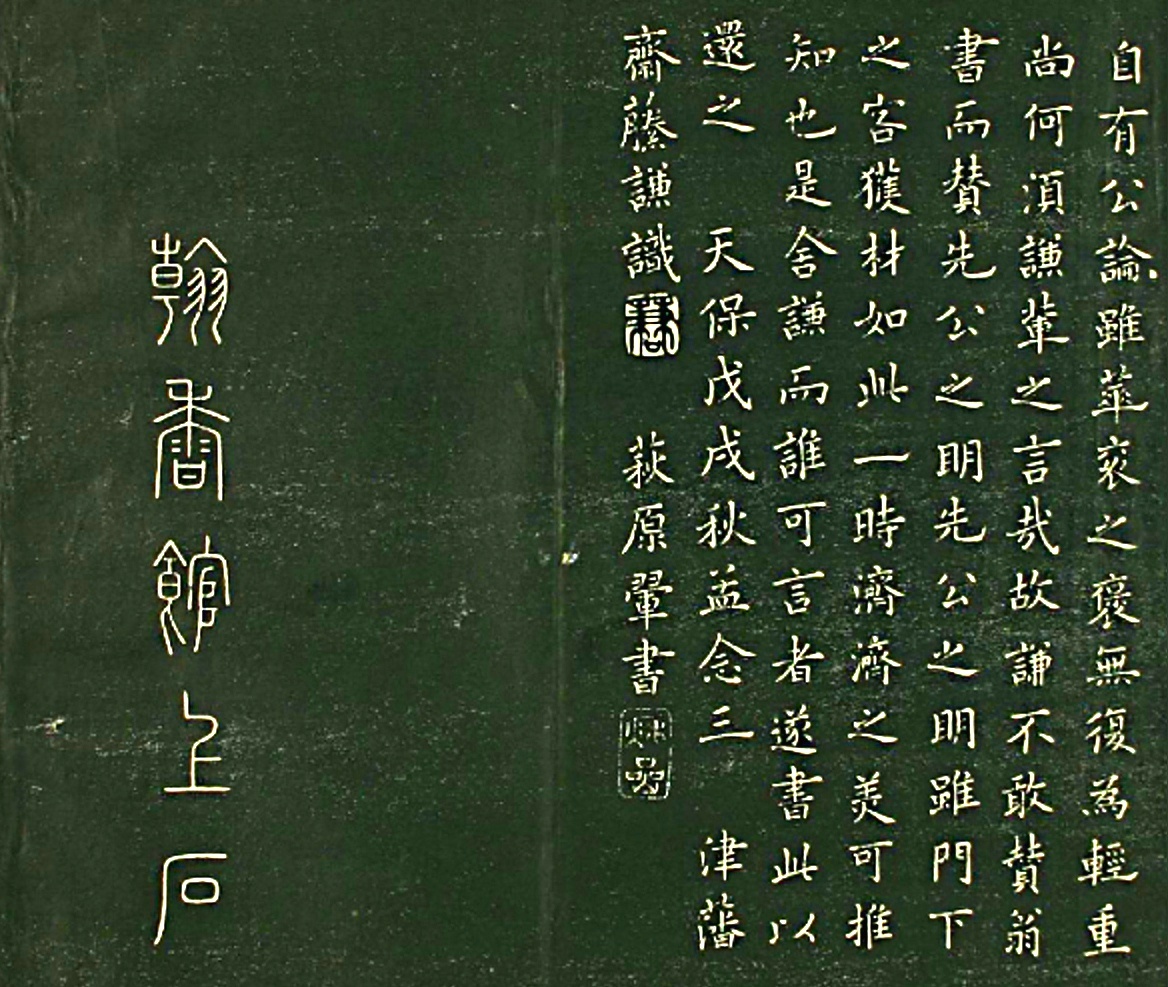 自有公論雖華衮之褒無復為輕重
尚何須謙輩之言哉故謙不敢贊翁
書而贊先公之明先公之明雖門下
之客獲材如此一時濟濟之美可推
知也是舍謙而誰可言者遂書此以
還之 天保戊戌秋孟念三 津藩
齋藤謙識 萩原翬書
翰香館上石